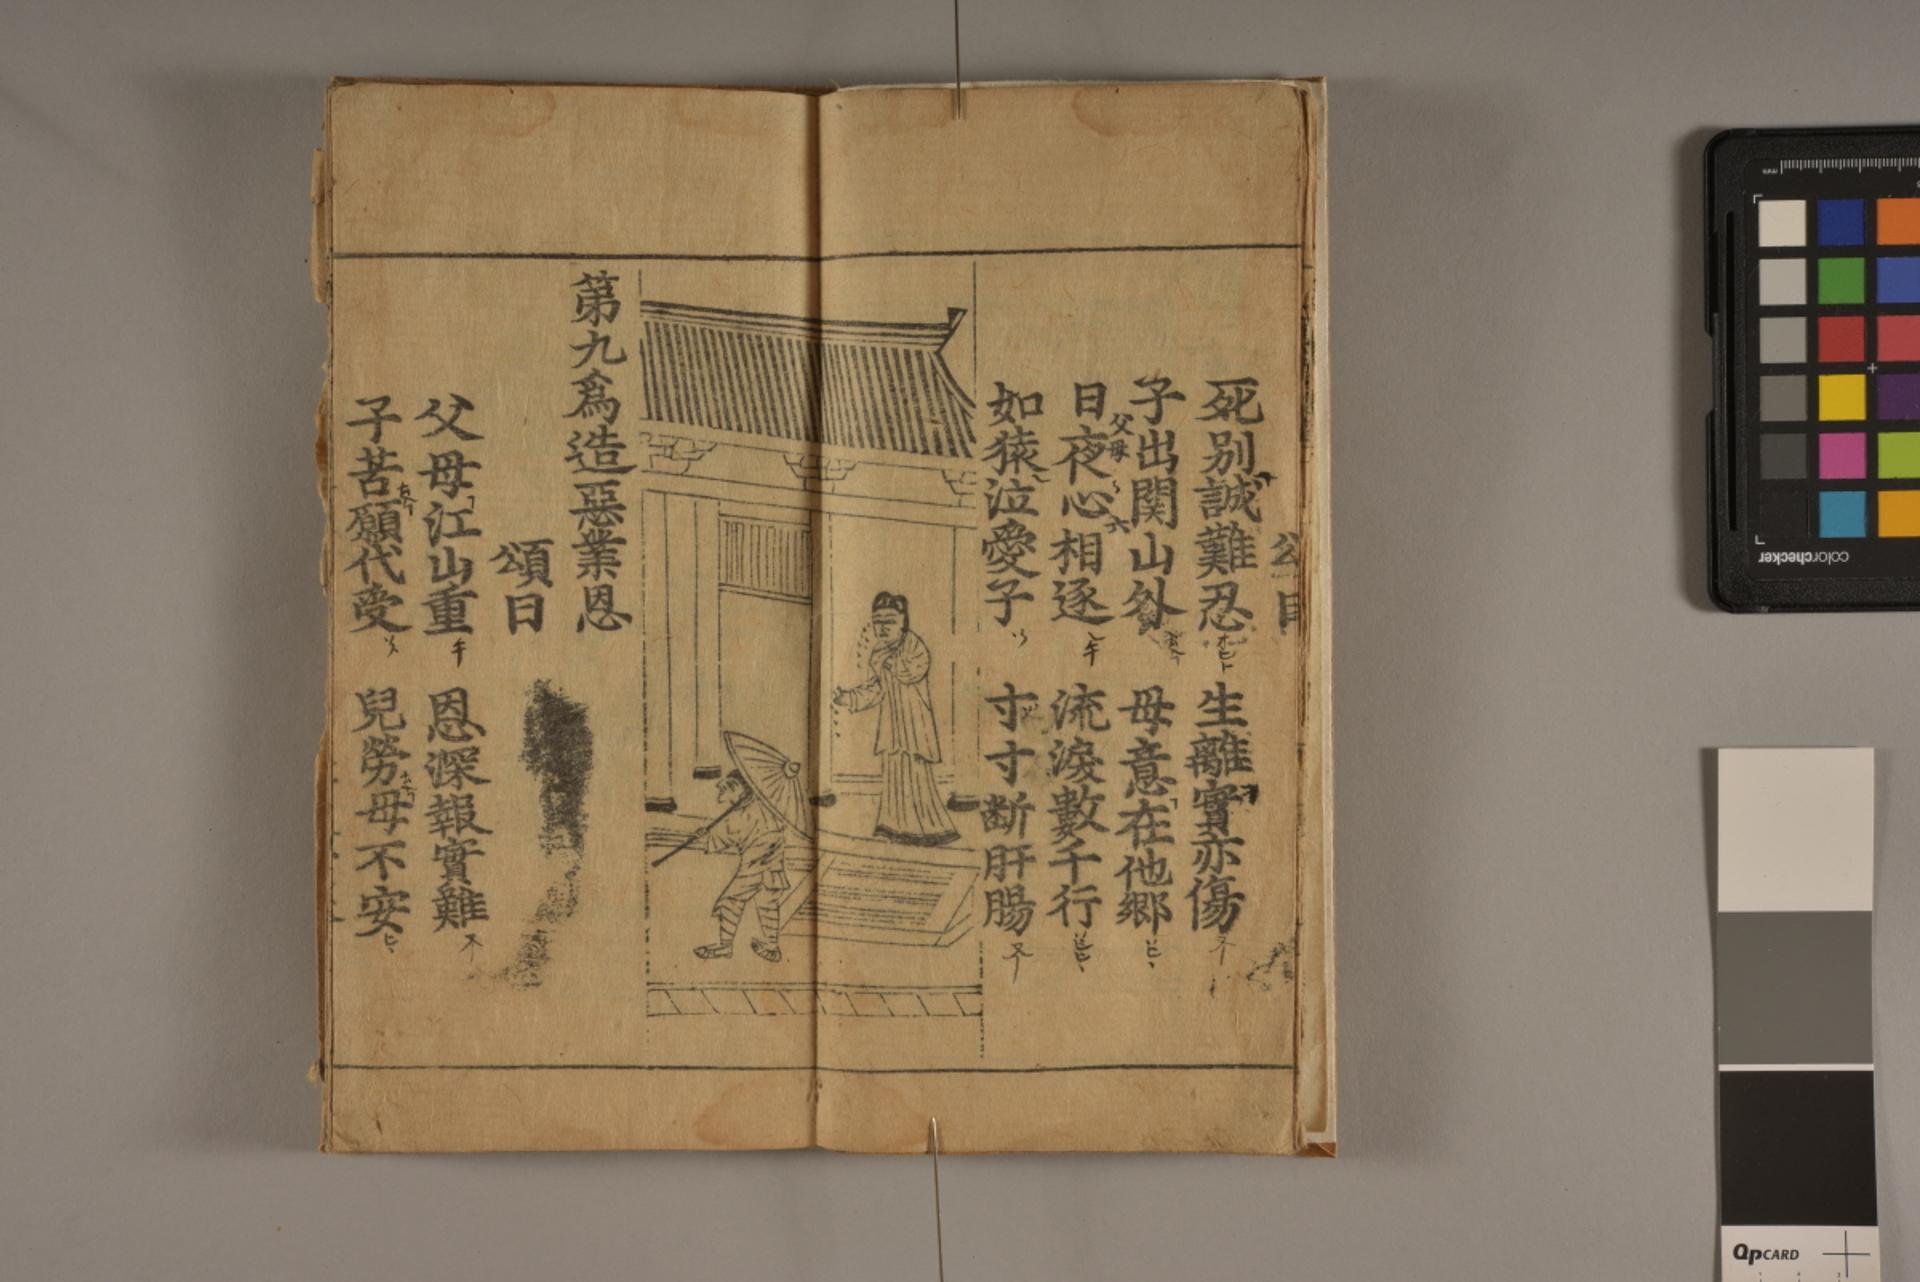 頌曰
死別誠難忍 生離實亦傷
子出関山外 母意在他郷
父母
日夜心相逐 流淚數千行
如猿泣愛子 寸寸断肝腸
第九為造惡業恩
頌曰
父母江山重 恩深報實難
子苦願代受 兒勞母不安
mm
colorchecker
QpCARD